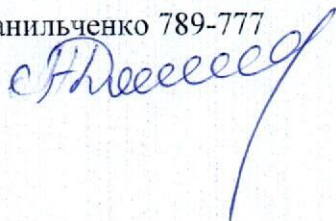 анильченко 789-777